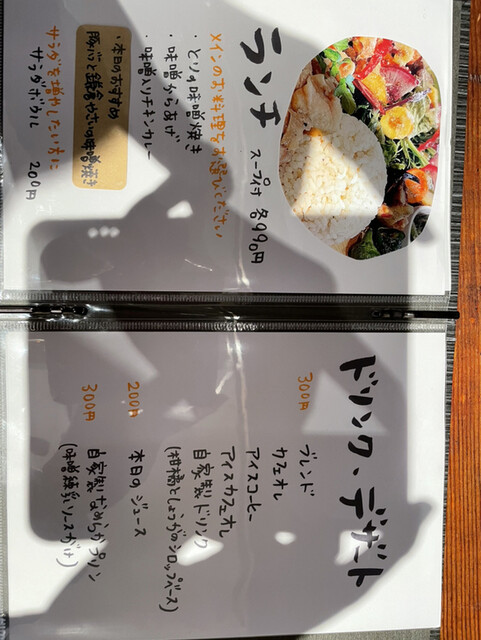 ランチ スープ付 各990円
メインのお料理をお選びください
・とりの味噌焼き
・味噌からあげ
・味噌入りチキンカレー
・本日のおすすめ
豚バラと鎌倉やさいの味噌焼き
サラダを増やしたい方に
サラダボウル 200円
ドリンク、デザート
300円 ブレンド
カフェオレ
アイスコーヒー
アイスカフェオレ
自家製ドリンク
(柑橘としょうがのシロップベース)
200円 本日のジュース
300円 自家製なめらかプリン
(味噌練乳ソースがけ)